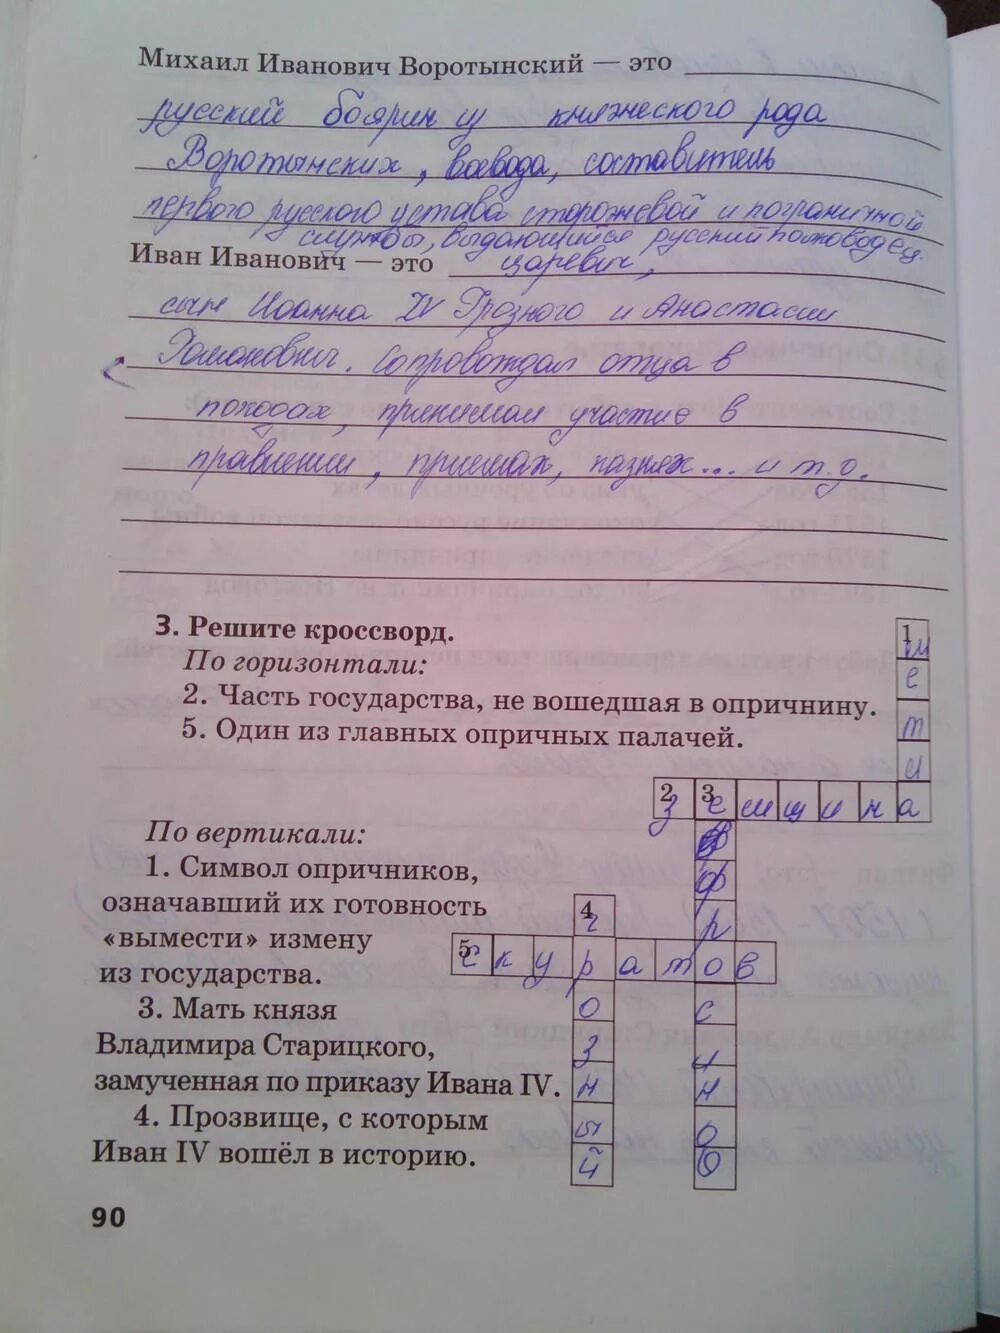 Михаил Иванович Воротынский — это
русский боярин из княжеского рода
Воротынских, воевода, составитель
первого русского устава сторожевой и пограничной
службы, выдающийся русский полководец.
Иван Иванович — это царевич,
сын Иоанна IV Грозного и Анастасии
Романовны. Сопровождал отца в
походах, принимал участие в
правлении, приемах, казнях... и т.д.
3. Решите кроссворд.
По горизонтали:
2. Часть государства, не вошедшая в опричнину.
5. Один из главных опричных палачей.
По вертикали:
1. Символ опричников,
означавший их готовность
«вымести» измену
из государства.
3. Мать князя
Владимира Старицкого,
замученная по приказу Ивана IV.
4. Прозвище, с которым
Иван IV вошёл в историю.
1 м
е
т
л
2 з 3 е м щ и н а
ф
р
4 г
5 с к у р а т о в
о с
з и
н н
ы о
й
90